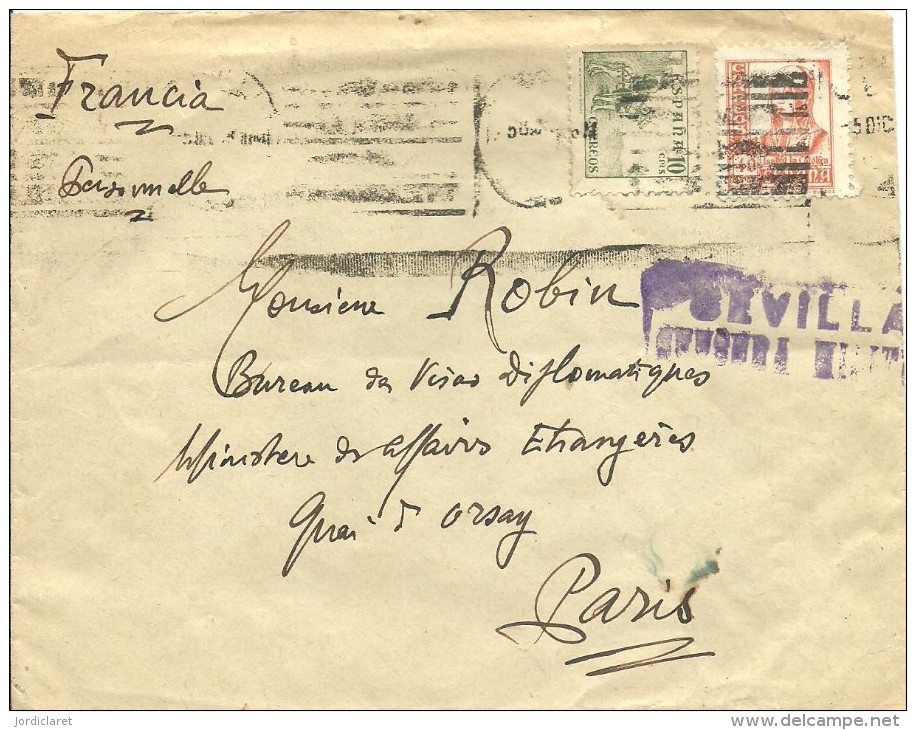 Francia
Personnelle
ESPAÑA
10
CTMS
CORREOS
5 DIC
SEVILLA
CENSURA MILIT
Monsieur Robin
Bureau des Visas Diplomatiques
Ministere des Affaires Etrangères
Quai d'Orsay
Paris
jordiclaret
www.delcampe.net